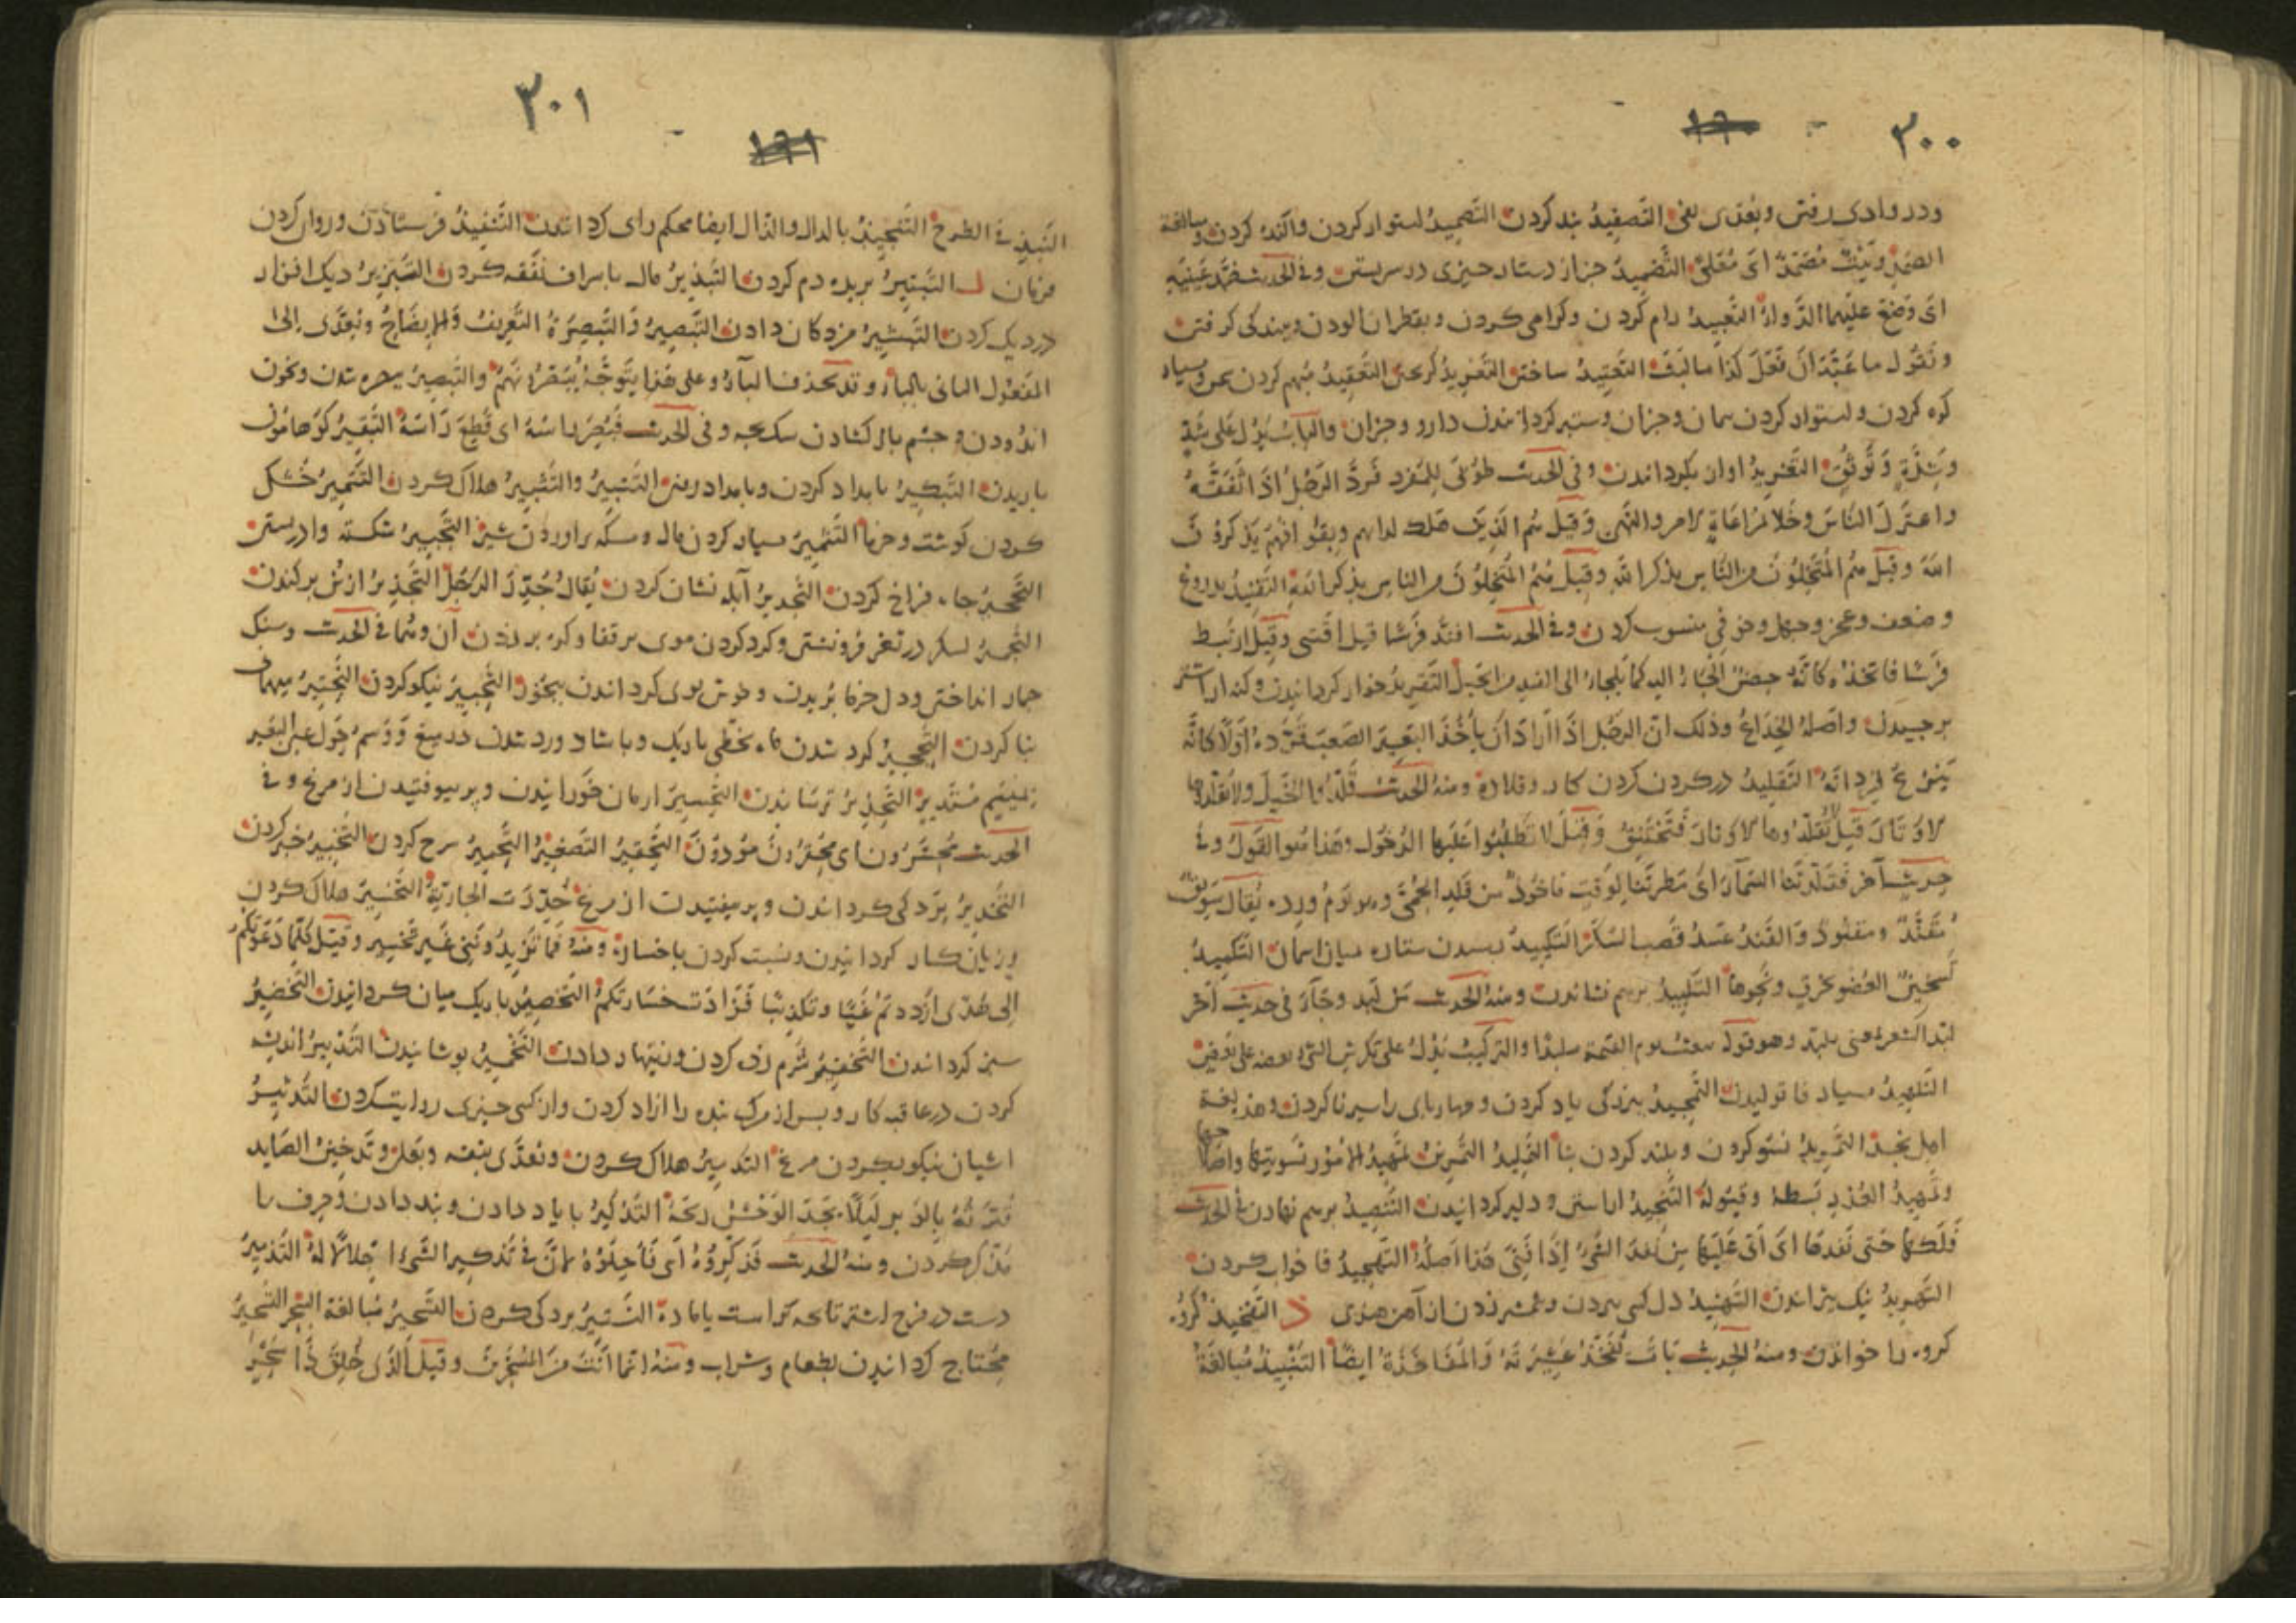 ٣٠٠
١٦٠
ودر وادی رفتن وبعدی بفی التصفید بند کردن التصمید استوار کردن واکنده کردن ومبالغة
الصمد وبیت مصمد ای معلی التضمید جزاز دستار چیزی در سر بستن وفی الحدیث ضمد عینیه
ای وضع علیهما الدواء التعبید رام کردن وکرامی کردن وبقطران الودن وببندکی کرفتن
ونقول ما عبد ان فعل کذا ما لبث التعتید ساختن التعرید کریختن التعقید مبهم کردن سخن وبسیار
کره کردن واستوار کردن پیمان وجزان وستبر کردانیدن دارو وجزان والباب یدل علی شد
وشدة وثوق التغرید اواز بکردانیدن وفی الحدیث طوبی للمفرد فرد الرجل اذا تفقه
واعتزل الناس وخلا بمراعاة الامر والنهی وقیل هم الذین هلك لداتهم وبقوا فهم یذکرون
الله وقیل هم المتخلون من الناس بذکر الله وقیل هم المتخلون من الناس بذکر الله التفنید بدروغ
وضعف وعجز وجهل وخرفی منسوب کردن وفی الحدیث افند فرسا قیل اقتنی وقیل ارتبط
فرسا فاتخذه کانه حصن الجأ الیه کما یلجأ الی الفند من الجبل التقرید خوار کردانیدن وکنه از اشتر
برچیدن واصله الخداع وذلك ان الرجل اذا اراد ان یأخذ البعیر الصعب قرده اولا کانه
ینزع قردانه التقلید در کردن کردن کار وقلاده ومنه الحدیث قلدوا الخیل ولا تقلدوها
الاوتار قیل لا تقلدوها الاوتار فتختنق وقیل لا تطلبوا علیها الذحول وهذا هو القول وفی
حدیث آخر فقلدتنا السماء ای مطرتنا لوقت ماخوذ من قلد الحمی وهو یوم ورده یقال سویق
مقند ومقنود والقند عسل قصب السکر التکبید بمیان رسیدن ستاره میان اسمان التکمید
تسخین العضو بخرق ونحوها التلبید برهم نشاندن ومنه الحدیث من لبد وجاء فی حدیث آخر
لبد الشعر بمعنی تلبد وهو قوله یبعث یوم القیمة ملبدا والترکیب یدل علی تکرس الشیء بعضه علی بعض
التلهید بسیار فا تولیدن التمجید ببزرکی یاد کردن وچهارپای را سیر ناکردن وهذه لغة
اهل نجد التمرید نسو کردن وبلند کردن بنا التملید التمرین تمهید الامور تسویتها واصلاحها
وتمهید العذر بسطه وقبوله التنجید اراستن ودلیر کردانیدن التنضید برهم نهادن فی الحدیث
فلکها حتی نفدها ای اتی علیها من نفد الشیء اذا فنی هذا اصله التهجید فا خواب کردن
التهرید نیک پزاندن التهنید دل کسی بردن وشمشیر زدن از آهن هندی ذ التفخیذ کروه
کروه را خواندن ومنه الحدیث بات یفخذ عشیرته والمفاخذة ایضا التنبیذ مبالغة
٣٠١
١٦١
النبذ فی الطرح التنجیذ بالدال والذال ایضا محکم رای کردانیدن التنفیذ فرستادن وروان کردن
فرمان ر التبتیر بریده دم کردن التبذیر مال باسراف نفقه کردن التبزیر دیک افزار
در دیک کردن التبشیر مژدکان دادن التبصیر والتبصرة التعریف والایضاح ویعدی الی
المفعول الثانی بالباء وقد تحذف الباء وعلی هذا یتوجه یبصرونهم والتبصیر بیره شدن وبخون
اندودن وچشم باز کشادن سک بچه وفی الحدیث فبصر راسه ای قطع راسه التبقیر کو ها مون
باریدن التبکیر بامداد کردن وبامداد رفتن التتبیر والتثبیر هلاک کردن التتمیر خشک
کردن کوشت وخرما التثمیر بسیار کردن مال ومسکه براوردن شیر التجبیر شکسته وادربستن
التحجیر جاه فراخ کردن التجدیر آبله نشان کردن یقال جدر الرجل التجذیر از بن برکندن
التجمیر لشکر در ثغر فرونشتن وکرد کردن موی بر قفا وکره بر زدن آن ومنها فی الحدیث وسنک
جمار انداختن ودل خرما بریدن وخوش بوی کردانیدن ببخور التحبیر نیکو کردن التحتیر مهمان
بنا کردن التحجیر کرد شدن ماه بخطی باریک وباشاد ورد شدن در میغ ووسم حول عین البعیر
بمیسم مستدیر التحذیر ترسانیدن التحسیر ارمان خوردانیدن وپر بیوفتیدن از مرغ وفی
الحدیث محسرون ای محقرون موذون التحقیر التصغیر التحمیر سرخ کردن التخبیر خبر کردن
التخدیر پردکی کردانیدن وپر بیفتیدن از مرغ خدرت الجاریة التخسیر هلاک کردن
وزیان کار کردانیدن ونسبت کردن باخسار ومنه فما تزیدوننی غیر تخسیر وقیل کلما دعوتکم
الی هدی ازددتم غیا وتکذیبا فزادت خسارتکم التخصیر باریک میان کردانیدن التخضیر
سبز کردانیدن التخفیر شرم زده کردن وزینهار دادن التخمیر پوشانیدن التدبیر اندیشه
کردن در عاقبه کار وپس از مرک بنده را ازاد کردن واز کسی چیزی روایت کردن التدثیر
اشیان نیکو بکردن مرغ التدمیر هلاک کردن وتعدی بنفسه وبعلی وتدخین الصاید
قترته بالوبر لیلا یجد الوحش ریحه التذکیر بایاد دادن وپند دادن وحرف را
مذکر کردن ومنه الحدیث فذکروه ای فاجلوه لان فی تذکیر الشیء اجلالا له التذمیر
دست در فرج اشتر تا بچه نر است یا ماده التستیر پردکی کردن التسجیر مبالغة السجر التسحیر
محتاج کردانیدن بطعام وشراب ومنه انما انت من المسحرین وقیل الذی خلق ذا سحر